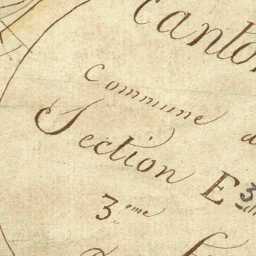 Canto
Commune d
Section E 3
3.eme